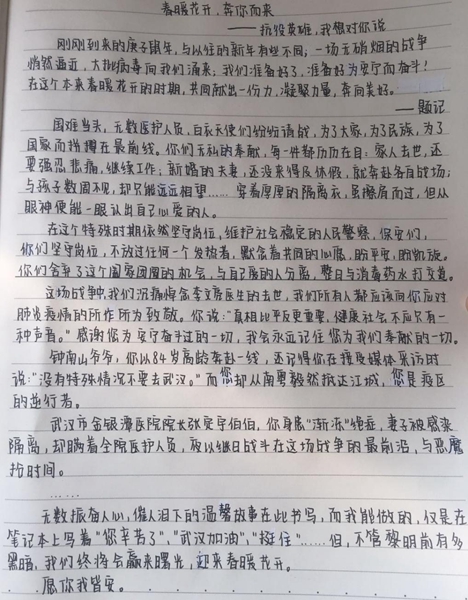 春暖花开，奔你而来
——抗役英雄，我想对你说
刚刚到来的庚子鼠年，与以往的新年有些不同，一场无硝烟的战争
悄然逼近，大批病毒向我们涌来，我们准备好了，准备好为安宁而奋斗！
在这个本来春暖花开的时期，共同献出一份力，凝聚力量，奔向美好。
——题记
国难当头，无数医护人员，白衣天使们纷纷请战，为了大家，为了民族，为了
国家而挡搁在最前线。你们无私的奉献，每一件都历历在目：家人去世，还
要强忍悲痛，继续工作；新婚的夫妻，还没来得及休假，就奔赴各自战场；
与孩子数周不见，却只能远远相望……穿着厚厚的隔离衣，虽擦肩而过，但从
眼神便能一眼认出自己心爱的人。
在这个特殊时期依然坚守岗位，维护社会稳定的人民警察，保安们，
你们坚守岗位，不放过任何一个发热者，默念着共同的心愿，盼平安，盼凯旋。
你们舍弃了这个阖家团圆的机会，与自己的人分离，整日与消毒药水打交道。
这场战争中，我们沉痛悼念李文亮医生的去世，我们所有人都应该向你应对
肺炎疫情的所作所为致敬。你说：“真相比平反更重要，健康社会不应只有一
种声音。”感谢您为安宁奋斗过的一切，我会永远记住您为我们奉献的一切。
钟南山爷爷，你以84岁高龄奔赴一线，还记得你在接受媒体采访时
说：“没有特殊情况不要去武汉。”而您却从南粤毅然抵达江城，您是疫区
的逆行者。
武汉市金银潭医院院长张定宇伯伯，你身患“渐冻”绝症，妻子被感染
隔离，却瞒着全院医护人员，夜以继日战斗在这场战争的最前沿，与恶魔
抢时间。
……
无数振奋人心，催人泪下的温馨故事在此书写，而我能做的，仅是在
笔记本上写着“您辛苦了”，“武汉加油”，“挺住”……但，不管黎明前有多
黑暗，我们终将会赢来曙光，迎来春暖花开。
愿你我皆安。